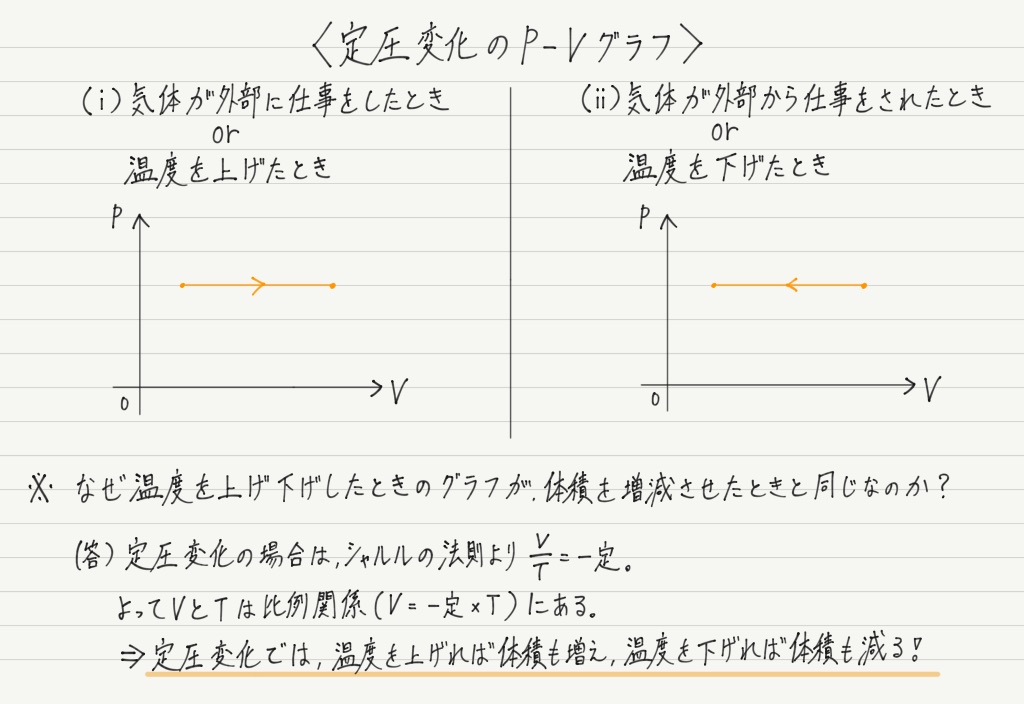 〈定圧変化のP-Vグラフ〉
(i)気体が外部に仕事をしたとき
or
温度を上げたとき
P
V
0
(ii)気体が外部から仕事をされたとき
or
温度を下げたとき
P
V
0
※ なぜ温度を上げ下げしたときのグラフが,体積を増減させたときと同じなのか?
(答)定圧変化の場合は,シャルルの法則より V/T=一定。
よってVとTは比例関係(V=一定×T)にある。
⇒定圧変化では,温度を上げれば体積も増え,温度を下げれば体積も減る!